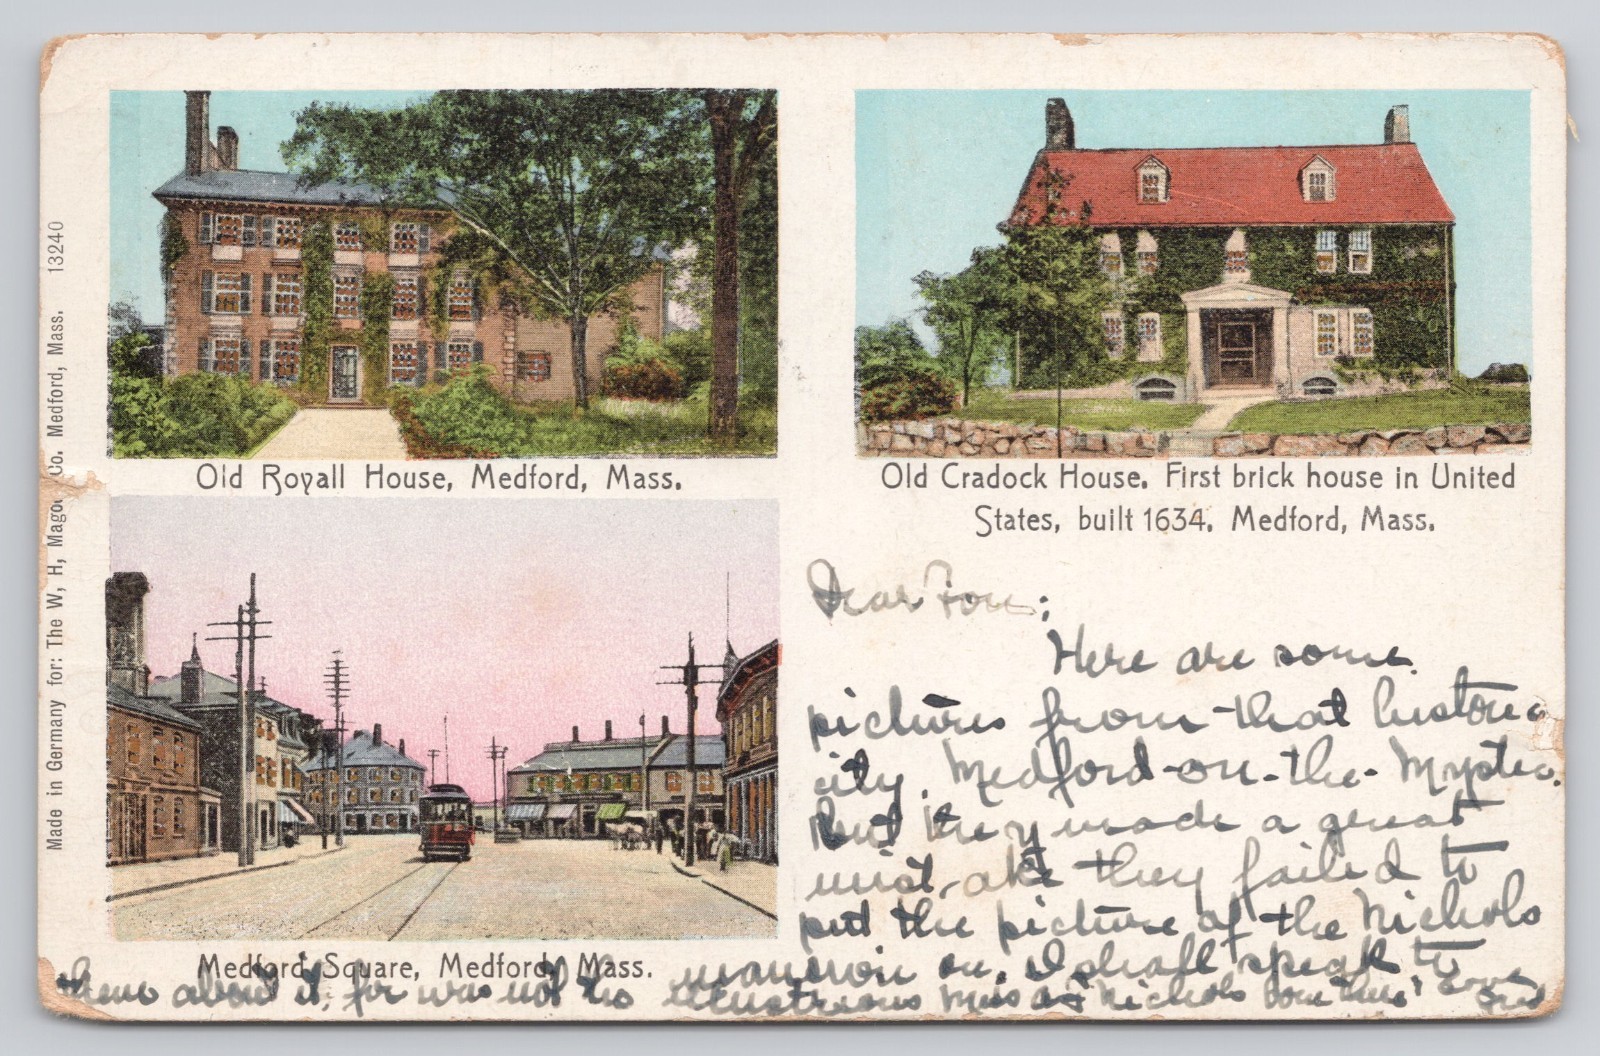 Old Royall House, Medford, Mass.
Old Cradock House. First brick house in United
States, built 1634. Medford, Mass.
Medford Square, Medford, Mass.
Made in Germany for: The W, H, Co. Medford, Mass. 13240
Dear
Here are some
pictures from that
city. Medford-on-the-
But they made a great
mistake they failed to
put the picture of the Nichols
mansion on. I shall speak to
them about it, for was not the illustrious Miss Nichols